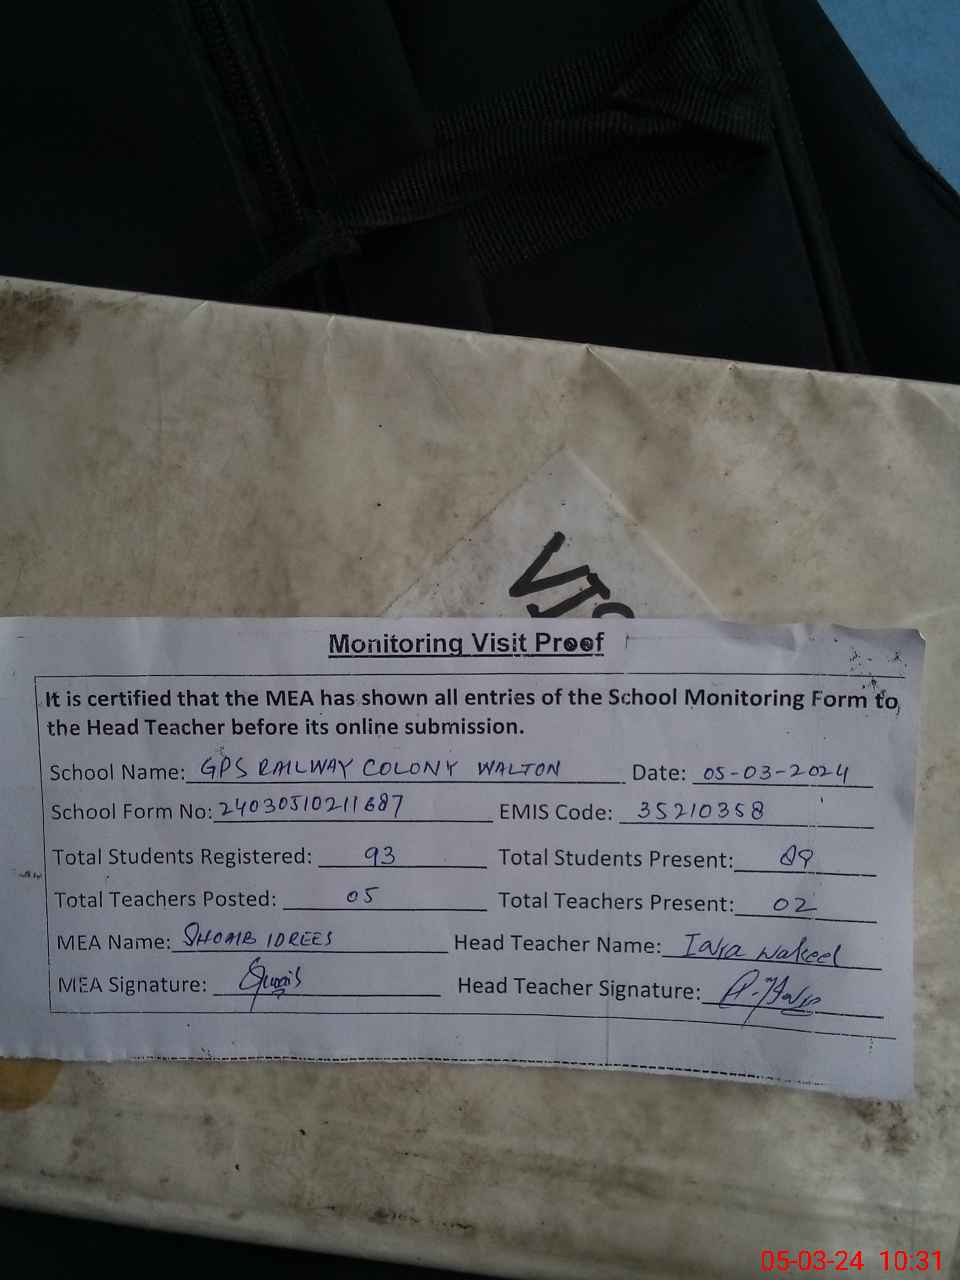 VIS
Monitoring Visit Proof
It is certified that the MEA has shown all entries of the School Monitoring Form to
the Head Teacher before its online submission.
School Name: GPS RAILWAY COLONY WALTON Date: 05-03-2024
School Form No: 24030510211687 EMIS Code: 35210358
Total Students Registered: 93 Total Students Present:
Total Teachers Posted: 05 Total Teachers Present: 02
MEA Name: SHOAIB IDREES Head Teacher Name: Wakeel
MEA Signature: Head Teacher Signature:
05-03-24 10:31